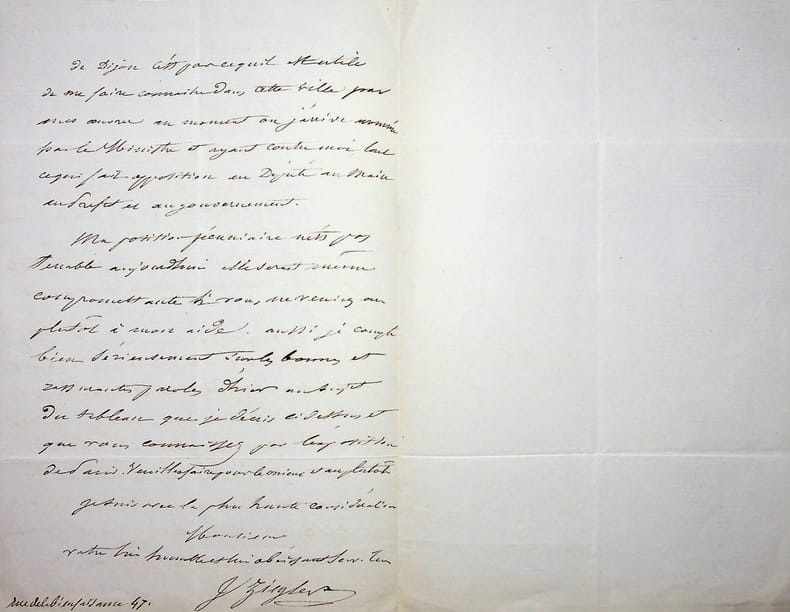 de Dijon c'est parcequil est utile
de me faire connaitre dans cette ville par
mes œuvre au moment ou j'arrive nommé
par le Ministre et ayant contre moi tout
ce qui fait opposition au Député au Maire
au Prefet et au gouvernement.
Ma position pécuniaire n'est pas
tenable aujourdhui elle serait même
compromettante si vous ne veniez au
plutôt à mon aide. aussi je compte
bien sérieusement sur les bonnes et
rassurantes paroles d'hier au sujet
du tableau que je décris cidessus et
que vous connaissez par l'exposition
de Paris. Veuillez faire pour le mieux et au plutôt
je suis avec la plus haute considération
Monsieur
votre très humble et très obéissant
J Ziegler
rue de la bienfaisance 47.